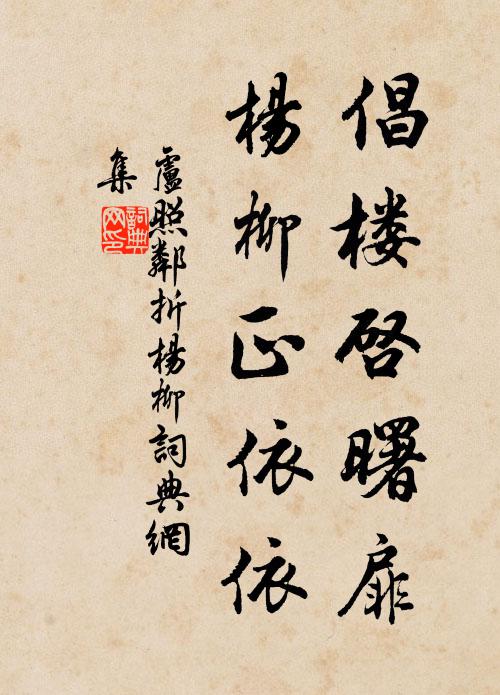 倡楼启曙扉
杨柳正依依
卢照邻折杨柳词典网
集
词典
网印